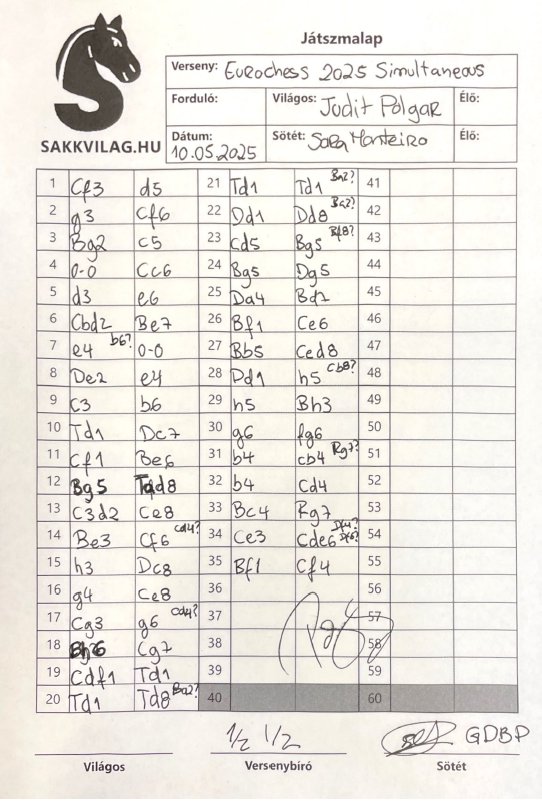 Játszmalap
SAKKVILAG.HU
Verseny: Eurochess 2025 Simultaneous
Forduló: Világos: Judit Polgar Élő:
Dátum: 10.05.2025 Sötét: Sara Monteiro Élő:
1 Cf3 d5 21 Td1 Td1 Ba2? 41
2 g3 Cf6 22 Dd1 Dd8 Ba2? 42
3 Bg2 c5 23 Cd5 Bg5 Bf8? 43
4 0-0 Cc6 24 Bg5 Dg5 44
5 d3 e6 25 Da4 Bd7 45
6 Cbd2 Be7 26 Bf1 Ce6 46
7 e4 b6? 0-0 27 Bb5 Ced8 47
8 De2 e4 28 Dd1 h5 Cb8? 48
9 c3 b6 29 h5 Bh3 49
10 Td1 Dc7 30 g6 fg6 50
11 Cf1 Be6 31 b4 cb4 Rg7? 51
12 Bg5 Tad8 32 b4 Cd4 52
13 C3d2 Ce8 33 Bc4 Rg7 53
14 Be3 Cf6 cd4? 34 Ce3 Cde6 Df4? Df6? 54
15 h3 Dc8 35 Bf1 Cf4 55
16 g4 Ce8 36 56
17 Cg3 g6 Cd4? 37 57
18 Bh6 Cg7 38 58
19 Cdf1 Td1 39 59
20 Td1 Td8 Ba2? 40 60
1/2 1/2 GDBP
Világos Versenybíró Sötét